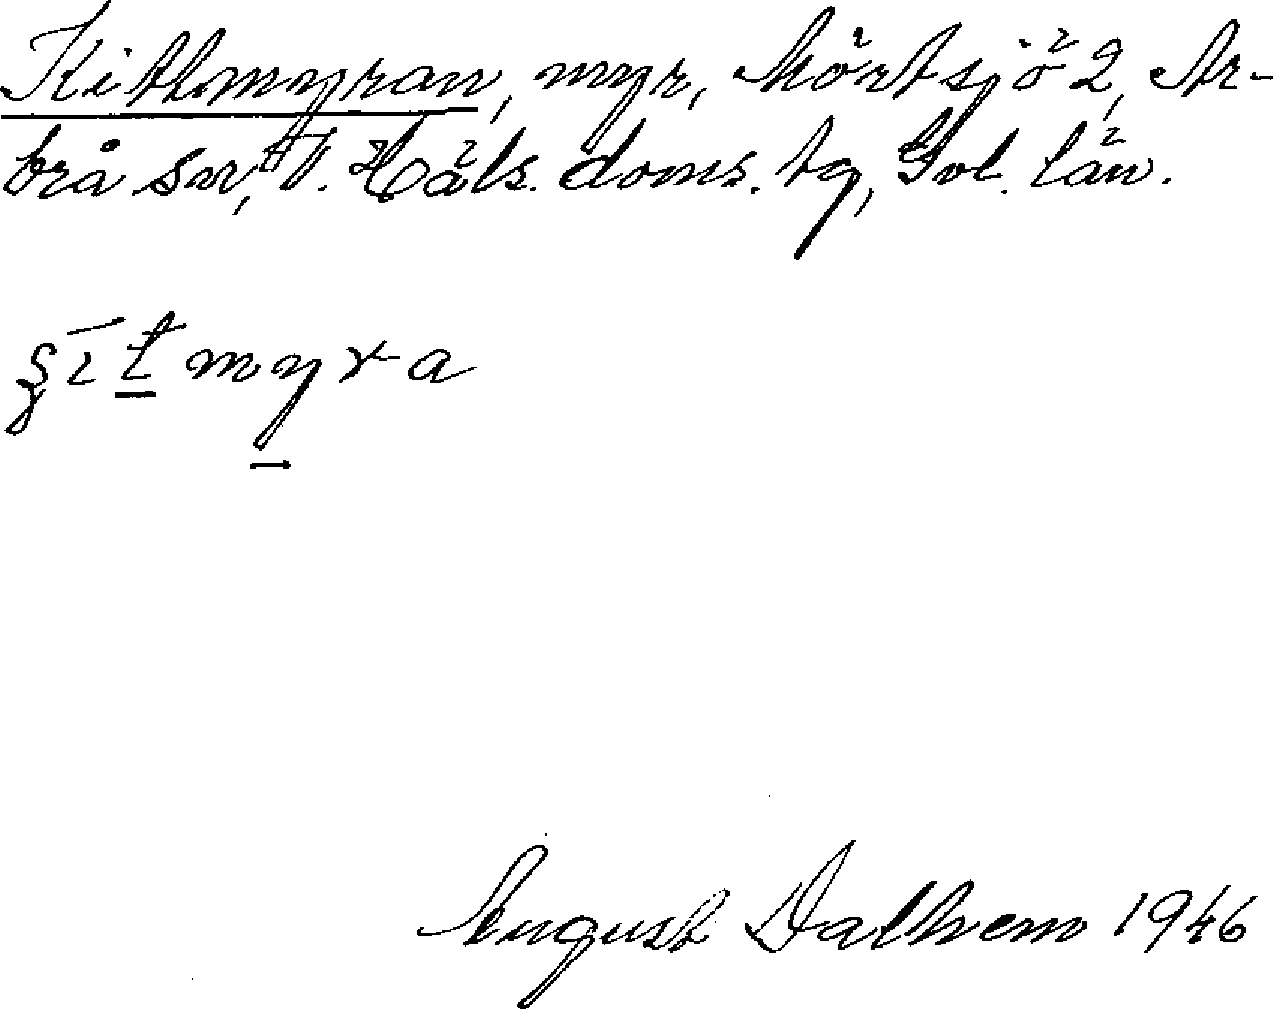 Kitlmyran, myr, Mörtsjö 2, Ar-
brå sn, V. Häls. doms. tg, Gvl. län.
August Dalhem 1946